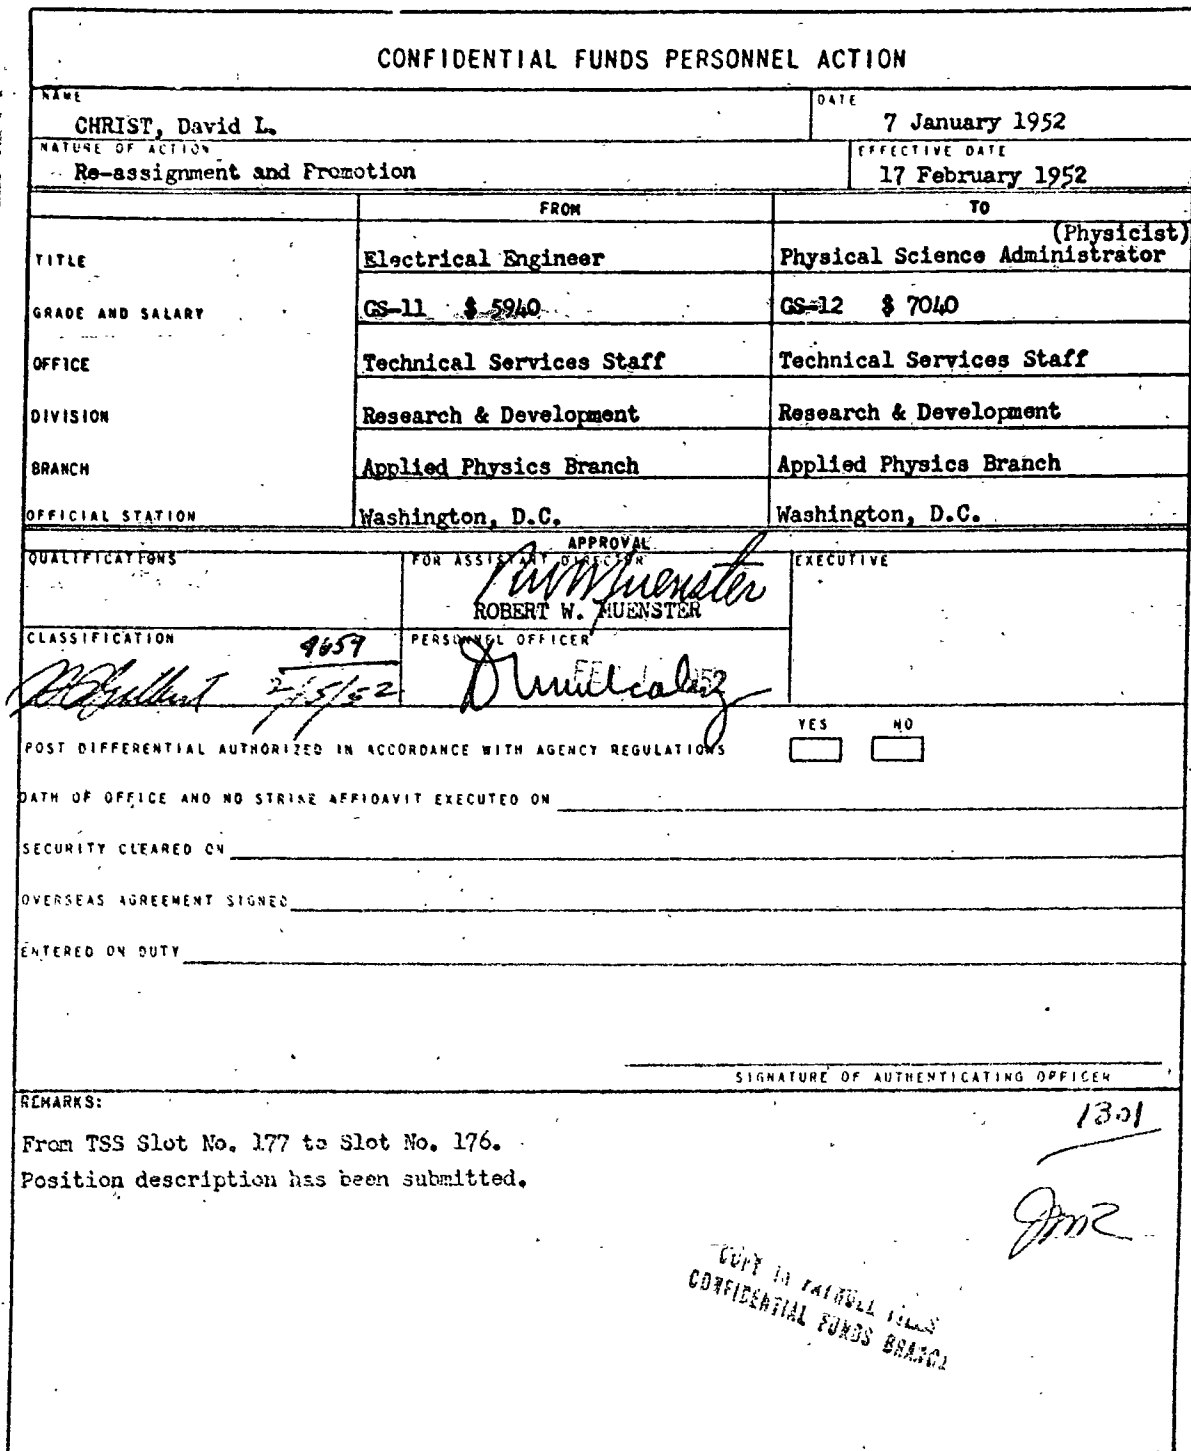 CONFIDENTIAL FUNDS PERSONNEL ACTION
NAME
CHRIST, David L.
DATE
7 January 1952
NATURE OF ACTION
Re-assignment and Promotion
EFFECTIVE DATE
17 February 1952
FROM
TO
TITLE
Electrical Engineer
(Physicist)
Physical Science Administrator
GRADE AND SALARY
GS-11 $ 5940
GS-12 $ 7040
OFFICE
Technical Services Staff
Technical Services Staff
DIVISION
Research & Development
Research & Development
BRANCH
Applied Physics Branch
Applied Physics Branch
OFFICIAL STATION
Washington, D.C.
Washington, D.C.
APPROVAL
QUALIFICATIONS
FOR ASSISTANT DIRECTOR
RW Muenster
ROBERT W. MUENSTER
EXECUTIVE
CLASSIFICATION
9659
2/15/52
PERSONNEL OFFICER
YES NO
POST DIFFERENTIAL AUTHORIZED IN ACCORDANCE WITH AGENCY REGULATIONS
OATH OF OFFICE AND NO STRIKE AFFIDAVIT EXECUTED ON
SECURITY CLEARED ON
OVERSEAS AGREEMENT SIGNED
ENTERED ON DUTY
SIGNATURE OF AUTHENTICATING OFFICER
REMARKS:
1301
From TSS Slot No. 177 to Slot No. 176.
Position description has been submitted.
COPY IN PAYROLL FILES
CONFIDENTIAL FUNDS BRANCH